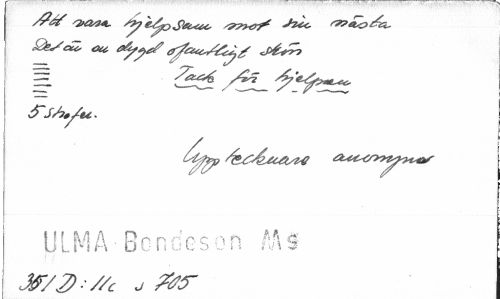 Att vara hjelpsam mot sin nästa
Det är en dygd ofantligt skön
Tack för hjelpen
5 strofer.
Upptecknare anonyma
ULMA Bondeson Ms
351 D:11c s 705